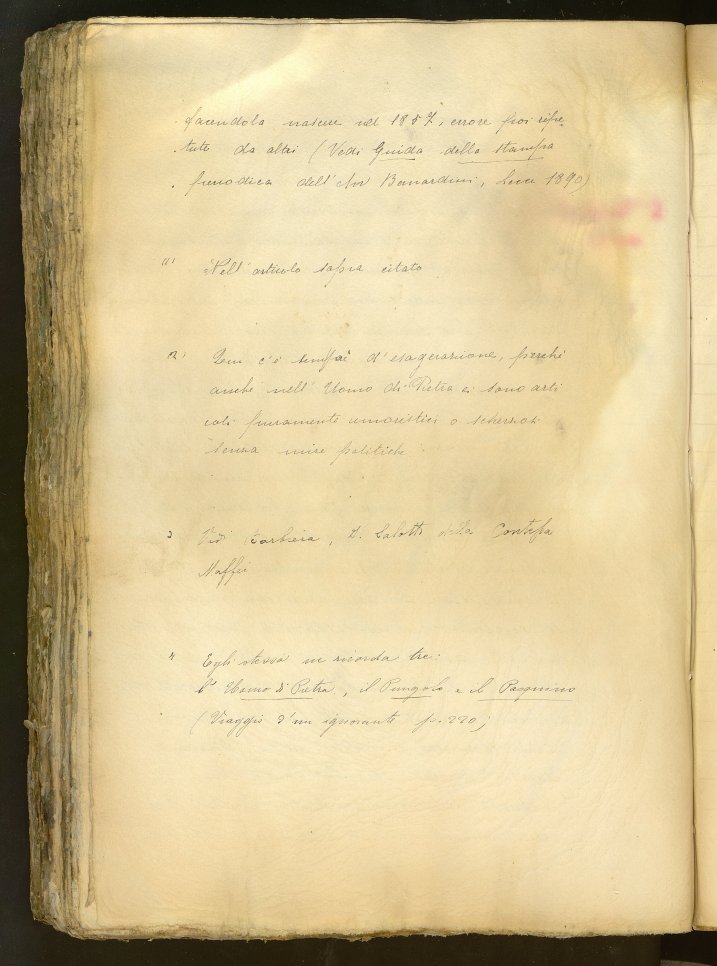 facendola nascere nel 1857, errore poi ripe-
tuto da altri (Vedi Guida della stampa
periodica dell'Avv Bernardini, Lecce 1890)
(1) Nell'articolo sopra citato
2) c'è d'esagerazione, perché
anche nell'Uomo di Pietra ci sono arti
coli puramente umoristici o scherzosi
senza mire politiche
3 Vedi Barbiera, Il Salotto della Contessa
Maffei
4 Egli stesso ne ricorda tre:
l'Uomo di Pietra, il Pungolo e il Pasquino
(Viaggio d'un ignorante p. 220)